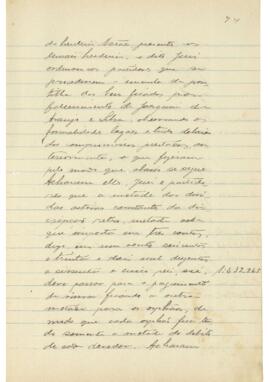 do herdeiro Matão presente os
demais herdeiros, o dito Juiz
ordenou aos partidores que
procedessem a emenda da par-
tilha dos bens ficados por
fallecimento de Joaquim de
Araujo e Silva, observando as
formalidade legaes e tendo debaixo
do compromisso prestado, an-
teriormente, o que fizeram
pelo modo que abaixo se segue
Acharam elle Juiz e partido-
res que a metade das dou-
das activas constante da
retro, metade esta
que importa em tres contos,
digo em um conto seiscentos
e trinta e dois mil duzentos
e sessenta e cinco reis, 1.632.265
deve passar para o pagamento
da viuva ficando a outra
metade para os orphãos, de
modo que cada orphão fica ten-
do somente a metade do debito
de cada devedor. Acharam